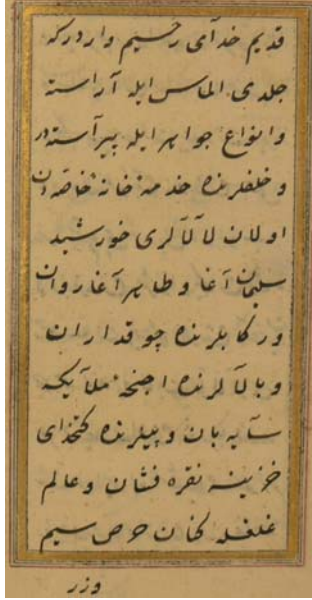 قدیم خدای رحیم واردرکه
جلدی الماس ایله آراسته
وانواع جواهر ایله پیرآسته در
وخلفلرنده خدمهٔ خانهٔ خاصه دن
اولان لآلآلری خورشید
سلیمان آغا وطاهر آغا روان
ورکابلرنده چوقداران
وبالآلرنده اجنحهٔ ملآیکه
سآیه بان وپیلرنده کتخدای
خزینه نقره فشان وعالم
غلغله کنان حرص سیم
وزر